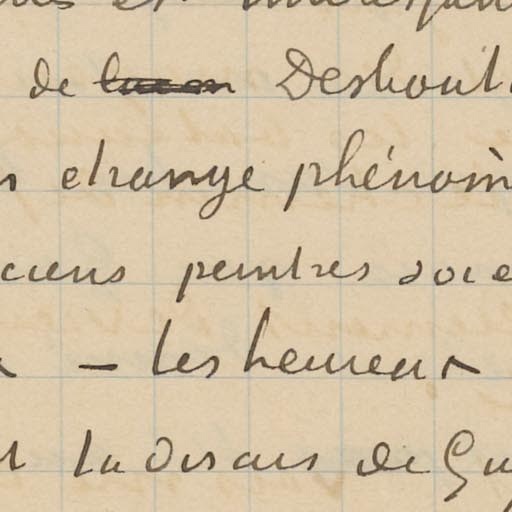 de Desbout
etrange phénom
ciens peintres soie
– les heureux
tu disais de Gu